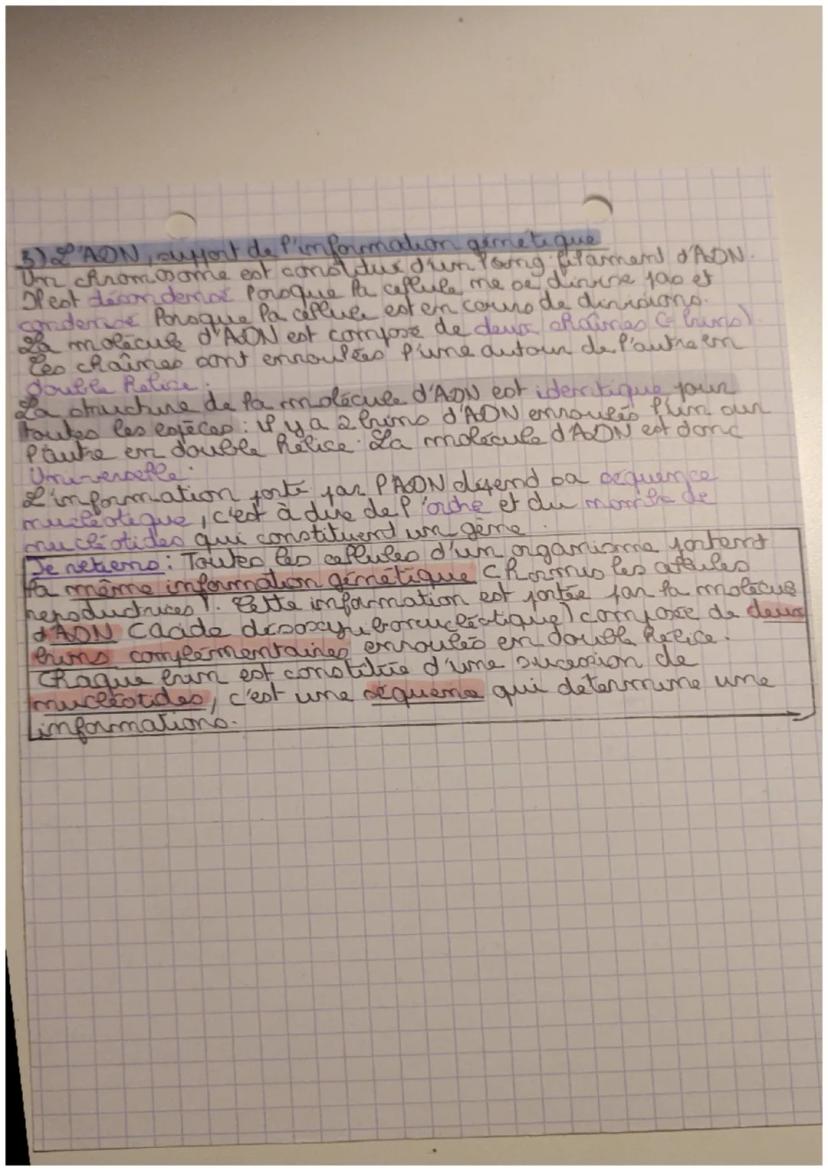 3) L'ADN, support de l'information génétique
Un chromosome est constitus d'un long filament d'ADN.
Il est décondensé lorsque la cellule ne se divise pas et
condensé lorsque la cellule est en cours de divisions.
La molécule d'ADN est compose de deux chaînes (= brins).
Les chaînes sont enroulées l'une autour de l'autre en
double hélice.
La structure de la molécule d'ADN est identique pour
toutes les espèces : il y a 2 brins d'ADN enroulés l'un sur
l'autre en double hélice. La molécule d'ADN est donc
Universelle.
L'information porté par l'ADN dépend sa séquence
nucléotique, c'est à dire de l'ordre et du nombre de
nucléotides qui constituent un gène.
Je retiens : Toutes les cellules d'un organisme portent
la même information génétique (hormis les cellules
reproductrices). Cette information est portée par la molécule
d'ADN (acide désoxyribonucléotique) compose de deux
brins complémentaires enroulés en double hélice.
Chaque brin est constituée d'une sucession de
nucléotides, c'est une séquence qui détermine une
informations.